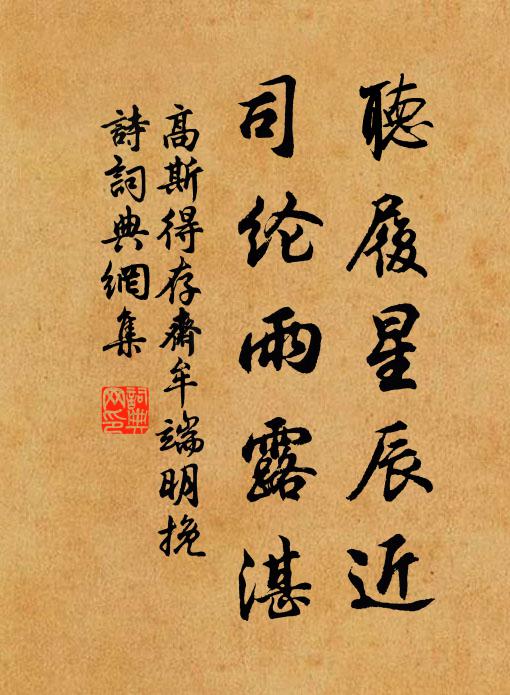 聽履星辰近
司纶雨露湛
高斯得存齋牟端明挽
詩詞典網集
詞典